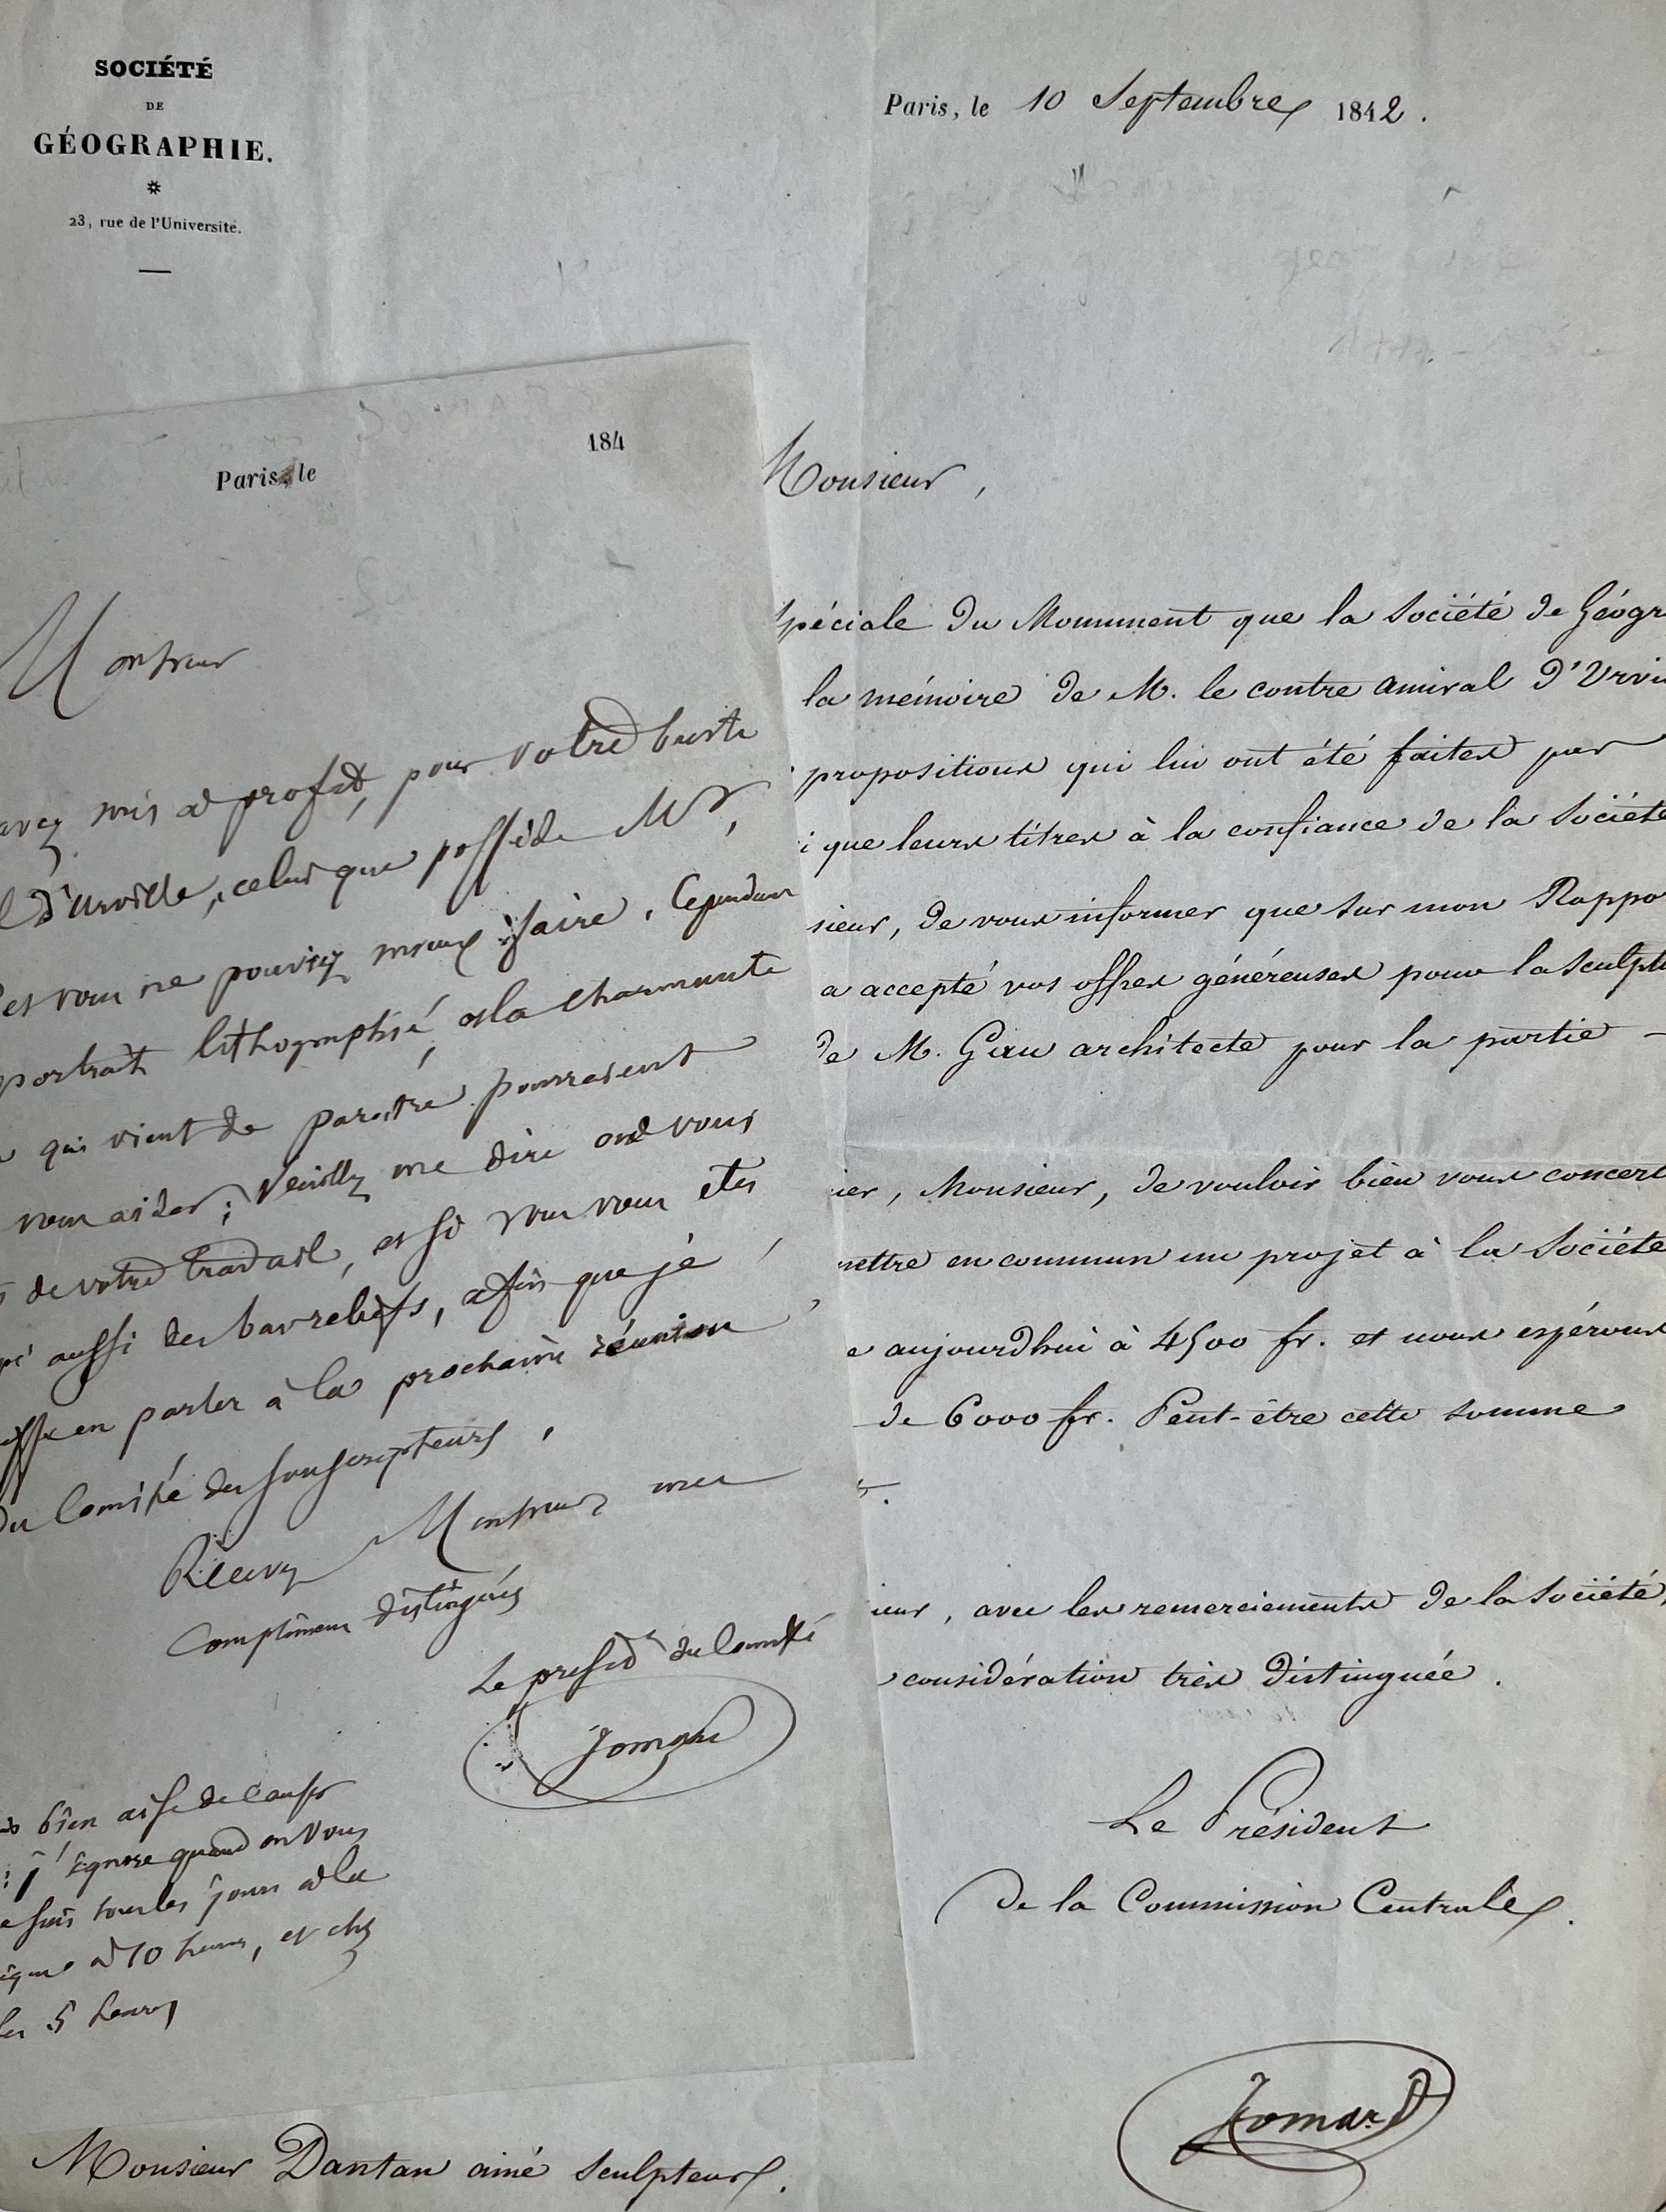 SOCIÉTÉ
DE
GÉOGRAPHIE.
23, rue de l'Université.
Paris, le 10 Septembre 1842.
Monsieur,
spéciale du Monument que la Société de Géogr
la mémoire de M. le contre amiral D'Urvi
propositions qui lui ont été faites par
i que leurs titres à la confiance de la Société
sieur, de vous informer que sur mon Rappo
a accepté vos offres généreuses pour la Sculptu
de M. Gau architecte pour la partie -
ier, Monsieur, de vouloir bien vous concert
mettre en commun un projet à la Société
e aujourdhui à 4500 fr. et nous espérons
de 6000 fr. Peut-être cette somme
ieur, avec les remerciements de la Société,
considération très distinguée.
Le Président
de la Commission Centrale.
Jomard
Monsieur Dantan ainé Sculpteur.
Paris, le 184
Monsieur
avez mis à profit, pour votre buste
l D'Urville, celui que possède Mr,
et vous ne pouviez mieux faire. Cependant
portrait lithographié, et la charmante
qui vient de paraître pourraient
vous aider; Veuillez me dire où vous
de votre travail, et si vous vous êtes
pé aussi des bas reliefs, afin que je
en parler à la prochaine réunion
du Comité des souscripteurs,
Recevez Monsieur mes
Complimens distingués
Le présid du Comité
Jomard
bien aise de causer
j'ignore quand on vous
e suis tous les jours à la
à 10 heures, et chez
les 5 heures